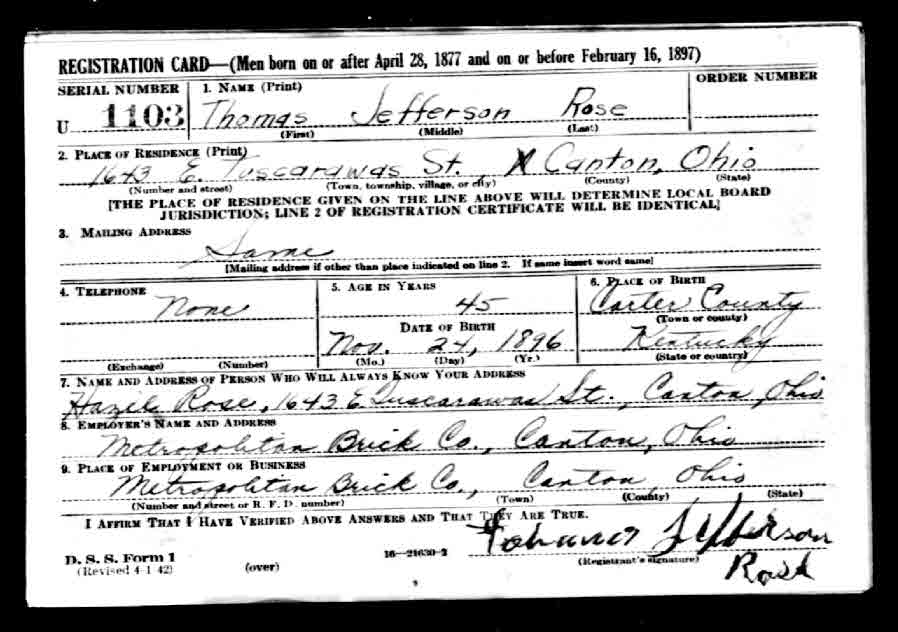 REGISTRATION CARD—(Men born on or after April 28, 1877 and on or before February 16, 1897)
SERIAL NUMBER
1. NAME (Print)
ORDER NUMBER
U 1103
Thomas Jefferson Rose
(First) (Middle) (Last)
2. PLACE OF RESIDENCE (Print)
1643 E. Tuscarawas St. X Canton, Ohio
(Number and street) (Town, township, village, or city) (County) (State)
[THE PLACE OF RESIDENCE GIVEN ON THE LINE ABOVE WILL DETERMINE LOCAL BOARD
JURISDICTION; LINE 2 OF REGISTRATION CERTIFICATE WILL BE IDENTICAL]
3. MAILING ADDRESS
Same
[Mailing address if other than place indicated on line 2. If same insert word same]
4. TELEPHONE
None
(Exchange) (Number)
5. AGE IN YEARS
45
DATE OF BIRTH
Nov. 24, 1896
(Mo.) (Day) (Yr.)
6. PLACE OF BIRTH
Carter County
(Town or county)
Kentucky
(State or country)
7. NAME AND ADDRESS OF PERSON WHO WILL ALWAYS KNOW YOUR ADDRESS
Hazil Rose, 1643 E. Tuscarawas St., Canton, Ohio
8. EMPLOYER'S NAME AND ADDRESS
Metropolitan Brick Co., Canton, Ohio
9. PLACE OF EMPLOYMENT OR BUSINESS
Metropolitan Brick Co., Canton, Ohio
(Number and street or R. F. D. number) (Town) (County) (State)
I AFFIRM THAT I HAVE VERIFIED ABOVE ANSWERS AND THAT THEY ARE TRUE.
D. S. S. Form 1
(Revised 4-1-42)
(over)
16—21630-2
Jefferson
(Registrant's signature)
Rose